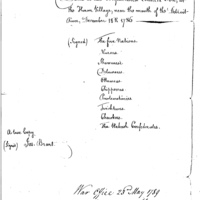 the Huron Village, near the mouth of the Detroit
River, December 18th 1786
(Signed) The five Nations
Hurons
Shawanese
Delawares
Ottawas
Chippewas
Powtewattimies
Twichtwees
Cherokees
The Wabash Confederates
A true Copy
(Signed) Jos: Brant
War Office 23d May 1789